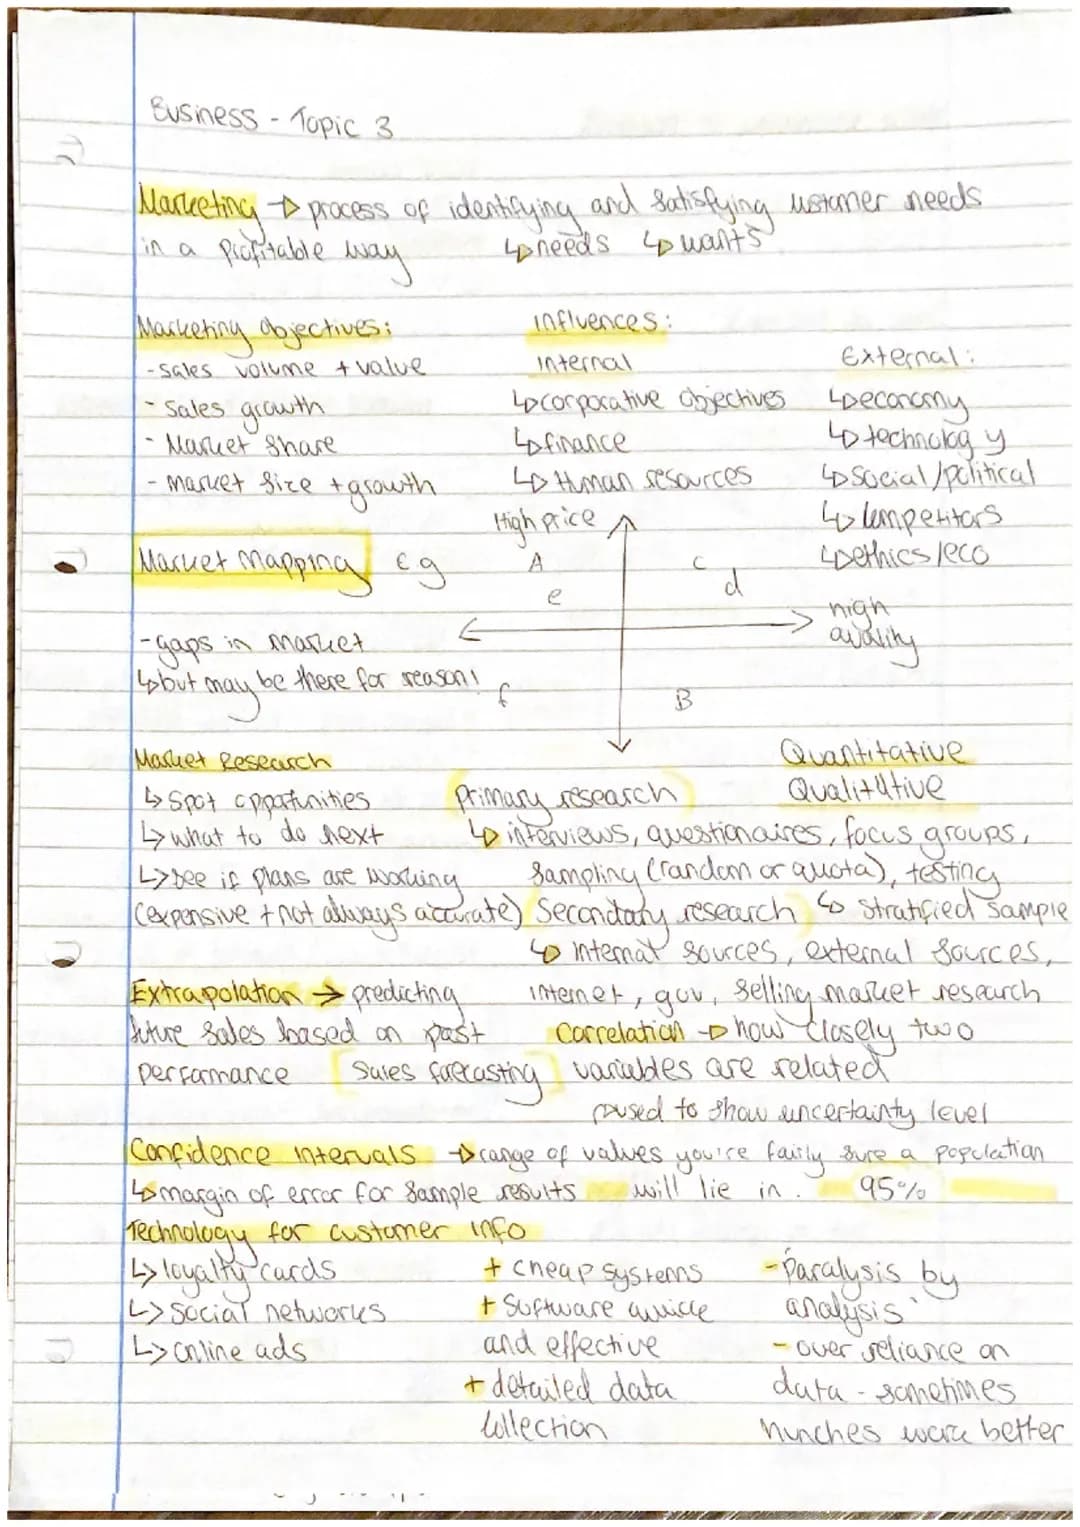 Business - Topic 3
Marketing → process of identifying and satisfying customer needs
in a profitable way ↳ needs ↳ wants
Marketing objectives: Influences:
- sales volume + value Internal External:
- Sales growth ↳ corporative objectives ↳ economy
- Market Share ↳ finance ↳ technology
- market size + growth ↳ Human resources ↳ social/political
High price ↳ competitors
Market Mapping Eg A C ↳ ethics/eco
e d
high
- gaps in market quality
↳ but may be there for reason!
f B
Market Research Quantitative
↳ Spot oppatunities primary research Qualitative
↳ what to do next ↳ interviews, questionaires, focus groups,
↳ see if plans are working Sampling (random or quota), testing
(expensive + not always accurate) Secondary research ↳ Stratified Sample
↳ internal sources, external sources,
Extrapolation → predicting internet, gov, selling market research
future sales based on past Correlation → how closely two
performance [Sales forecasting] variables are related
↳ used to show uncertainty level
Confidence intervals → range of values you're fairly sure a population
↳ margin of error for sample results will lie in. 95%
Technology for customer info
↳ loyalty cards + cheap systems - 'Paralysis by
↳ Social networks + Software quick analysis'
↳ online ads and effective - over reliance on
+ detailed data data - sometimes
collection hunches work better